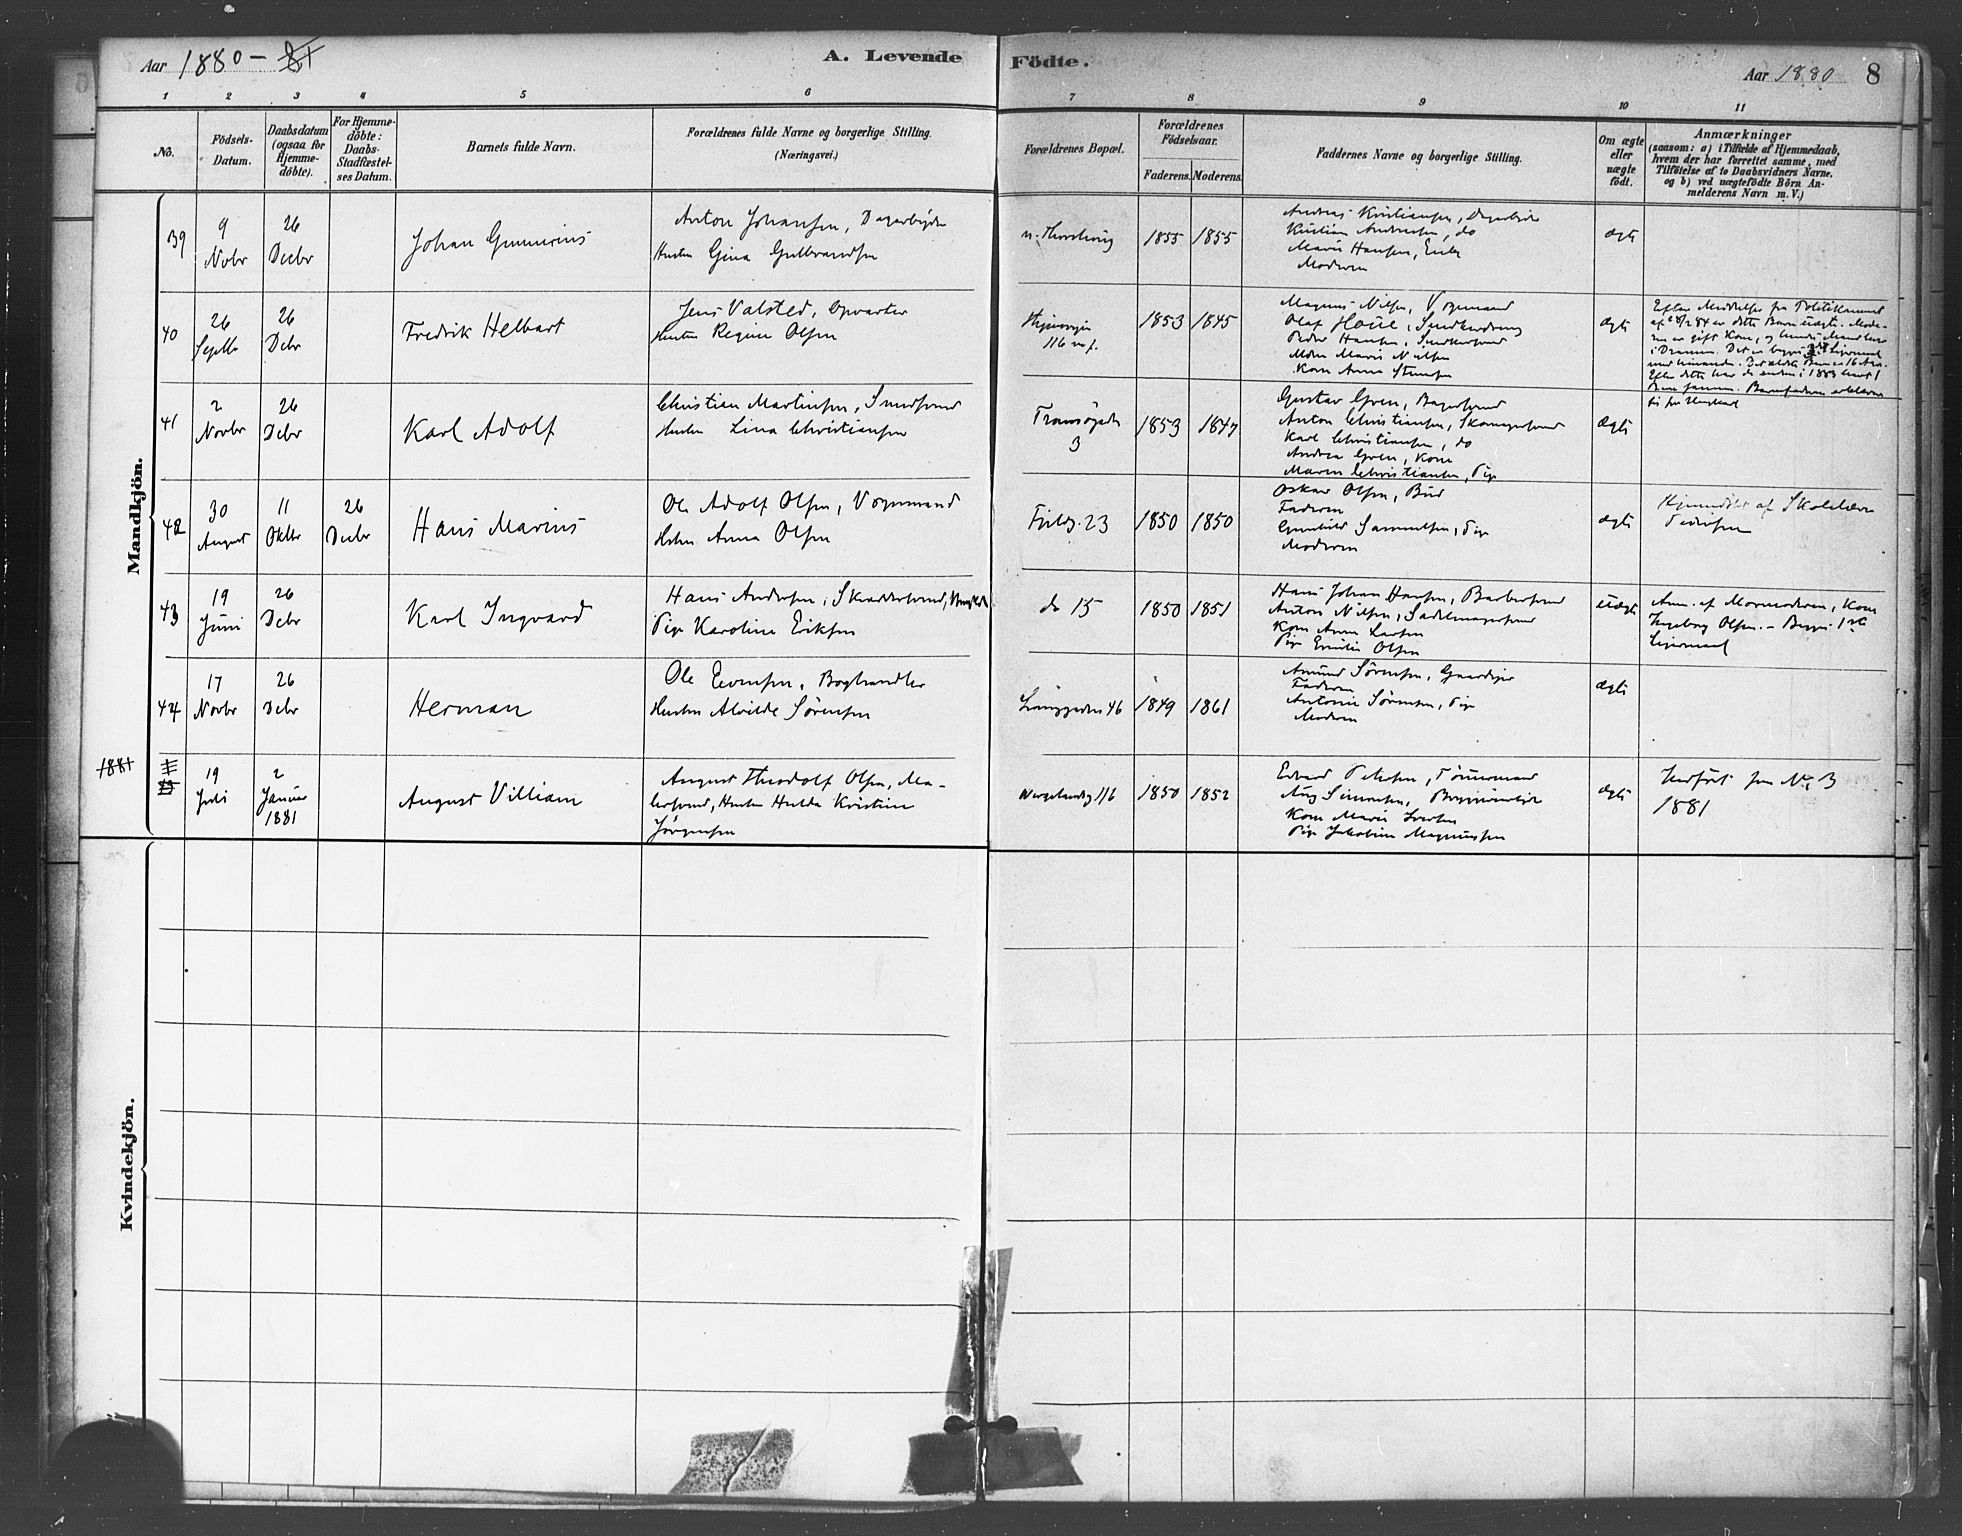 Aar 1880 - 81
A. Levende Födte.
Aar 1880
8
1 2 3 4 5 6 7 8 9 10 11
No.
Födsels-
Datum.
Daabsdatum
(ogsaa for
Hjemme-
döbte).
For Hjemme-
döbte:
Daabs-
Stadfæstel-
ses Datum.
Barnets fulde Navn.
Forældrenes fulde Navne og borgerlige Stilling.
(Næringsvei.)
Forældrenes Bopæl.
Forældrenes
Födselsaar.
Faderens.
Moderens.
Faddernes Navne og borgerlige Stilling.
Om ægte
eller
uægte
födt.
Anmærkninger
(saasom: a) i Tilfælde af Hjemmedaab,
hvem der har forrettet samme, med
Tilföielse af to Daabsvidners Navne,
og b) ved uægtefödte Börn An-
melderens Navn m. V.)
Mandkjön.
39
9
Novbr
26
Decbr
Johan Gunnerius
Anton Johansen, Dagarbejder
Hustru Gina Gulbrandsen
1855 1855
Andreas Kristiansen, Dagarbejder
Kristian Andersen, do
Marie Hansen, Enke
Moderen
Ægte
40
26
Septbr
26
Debr
Fredrik Helbart
Jens Valsted, Opvarter
Hustru Regine Olsen
116
1853 1845
Magnus Nilsen, Vognmand
Olaf
Peder Hansen, Snedkersvend
Marie Nilsen
Kone Anna Stensen
Ægte
Efter Meddelelse fra Politikammeret
er dette Barn uægte. Mode-
ren er gift Kone, og hendes Mand
i Drammen. Det er
16 Aar.
Efter dette har de enten i 1883 havt 1
Barn sammen. Barnefaderen
41
2
Novbr
26
Debr
Karl Adolf
Christian Martinsen, Smedsvend
Hustru Lina Christiansen
Tromsögaden
3
1853 1847
Gustav Gren, Bagersvend
Anton Christiansen, Skomagersvend
Karl Christiansen, do
Andrea Gren, Kone
Maren Christiansen, Pige
Ægte
42
30
August
11
Oktbr
26
Decbr
Hans Marius
Ole Adolf Olsen, Vognmand
Hustru Anna Olsen
23
1850 1850
Oskar Olsen, Bud
Faderen
Gunhild Samuelsen, Pige
Moderen
Ægte
Hjemmedöbt af Skolelærer
Pedersen
43
19
Juni
26
Debr
Karl Ingvard
Hans Andersen, Skræddersvend, Ungkarl
Pige Karoline Eriksen
do 15
1850 1851
Hans Johan Hansen, Barbersvend
Anton Nilsen, Sadelmagersvend
Kone Anna Larsen
Pige Emilie Olsen
Uægte
Anm. af Mormoderen, Kone
Ingeborg Olsen. - Begges 1ste
Leiermaal
44
17
Novbr
26
Debr
Herman
Ole Evensen, Boghandler
Hustru Alvilde Sörensen
46
1849 1861
Amund Sörensen, Gaardejer
Faderen
Antonie Sörensen, Pige
Moderen
Ægte
1881
19
Juli
2
Januar
1881
August Villiam
August Theodolf Olsen, Ma-
lersvend, Hustru Hulda Kristine
Jörgensen
116
1850 1852
Edvard Petersen, Tömmermand
Aug Simonsen,
Kone Marie Iversen
Pige Jakobine Magnussen
Ægte
Indfört fra No. 3
1881
Kvindekjön.